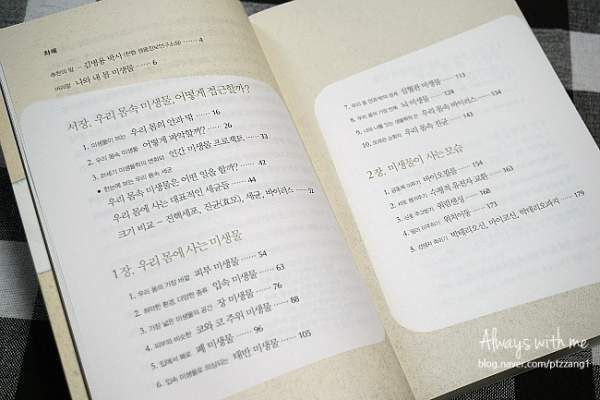 차례
추천의 말 – 김병용 박사 4
머리말 나와 내 몸 미생물 6
서장. 우리 몸속 미생물, 어떻게 접근할까?
1. 미생물이 보는 우리 몸의 안과 밖 16
2. 우리 몸속 미생물 어떻게 파악할까? 26
3. 21세기 미생물학의 변화와 인간 미생물 프로젝트 33
• 한눈에 보는 우리 몸속 세균
우리 몸속 미생물은 어떤 일을 할까? 42
우리 몸에 사는 대표적인 세균들 44
크기 비교 – 진핵세포, 진균(효모), 세균, 바이러스 52
1장. 우리 몸에 사는 미생물
1. 우리 몸의 가장 바깥, 피부 미생물 54
2. 취약한 환경, 다양한 종류 입속 미생물 63
3. 가장 넓은 미생물의 공간 장 미생물 76
4. 피부와 비슷한 코와 코 주위 미생물 88
5. 입에서 폐로, 폐 미생물 96
6. 입속 미생물로 의심되는 태반 미생물 105
7. 심혈관 미생물 113
8. 뇌 미생물 124
9. 우리 몸속 바이러스 134
10. 우리 몸속 진균 143
2장. 미생물이 사는 모습
1. 바이오필름 154
2. 수평적 유전자 교환 163
3. 쿼럼센싱 168
4. 위치이동 171
5. 박테리오신, 마이코신, 박테리오파지 179
Always with me
blog.naver.com/ptzzang1